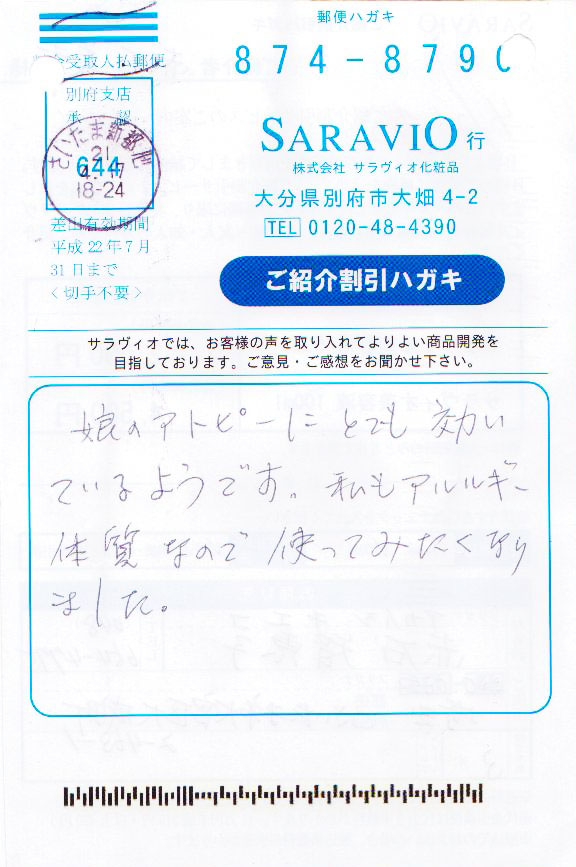 郵便ハガキ
874-8790
金受取人払郵便
別府支店
承認
644
さいたま新都心
21
4.17
18-24
差出有効期間
平成22年7月
31日まで
<切手不要>
SARAVIO 行
株式会社 サラヴィオ化粧品
大分県別府市大畑4-2
TEL 0120-48-4390
ご紹介割引ハガキ
サラヴィオでは、お客様の声を取り入れてよりよい商品開発を
目指しております。ご意見・ご感想をお聞かせ下さい。
娘のアトピーにとても効い
ているようです。私もアルルギー
体質なので使ってみたくなり
ました。